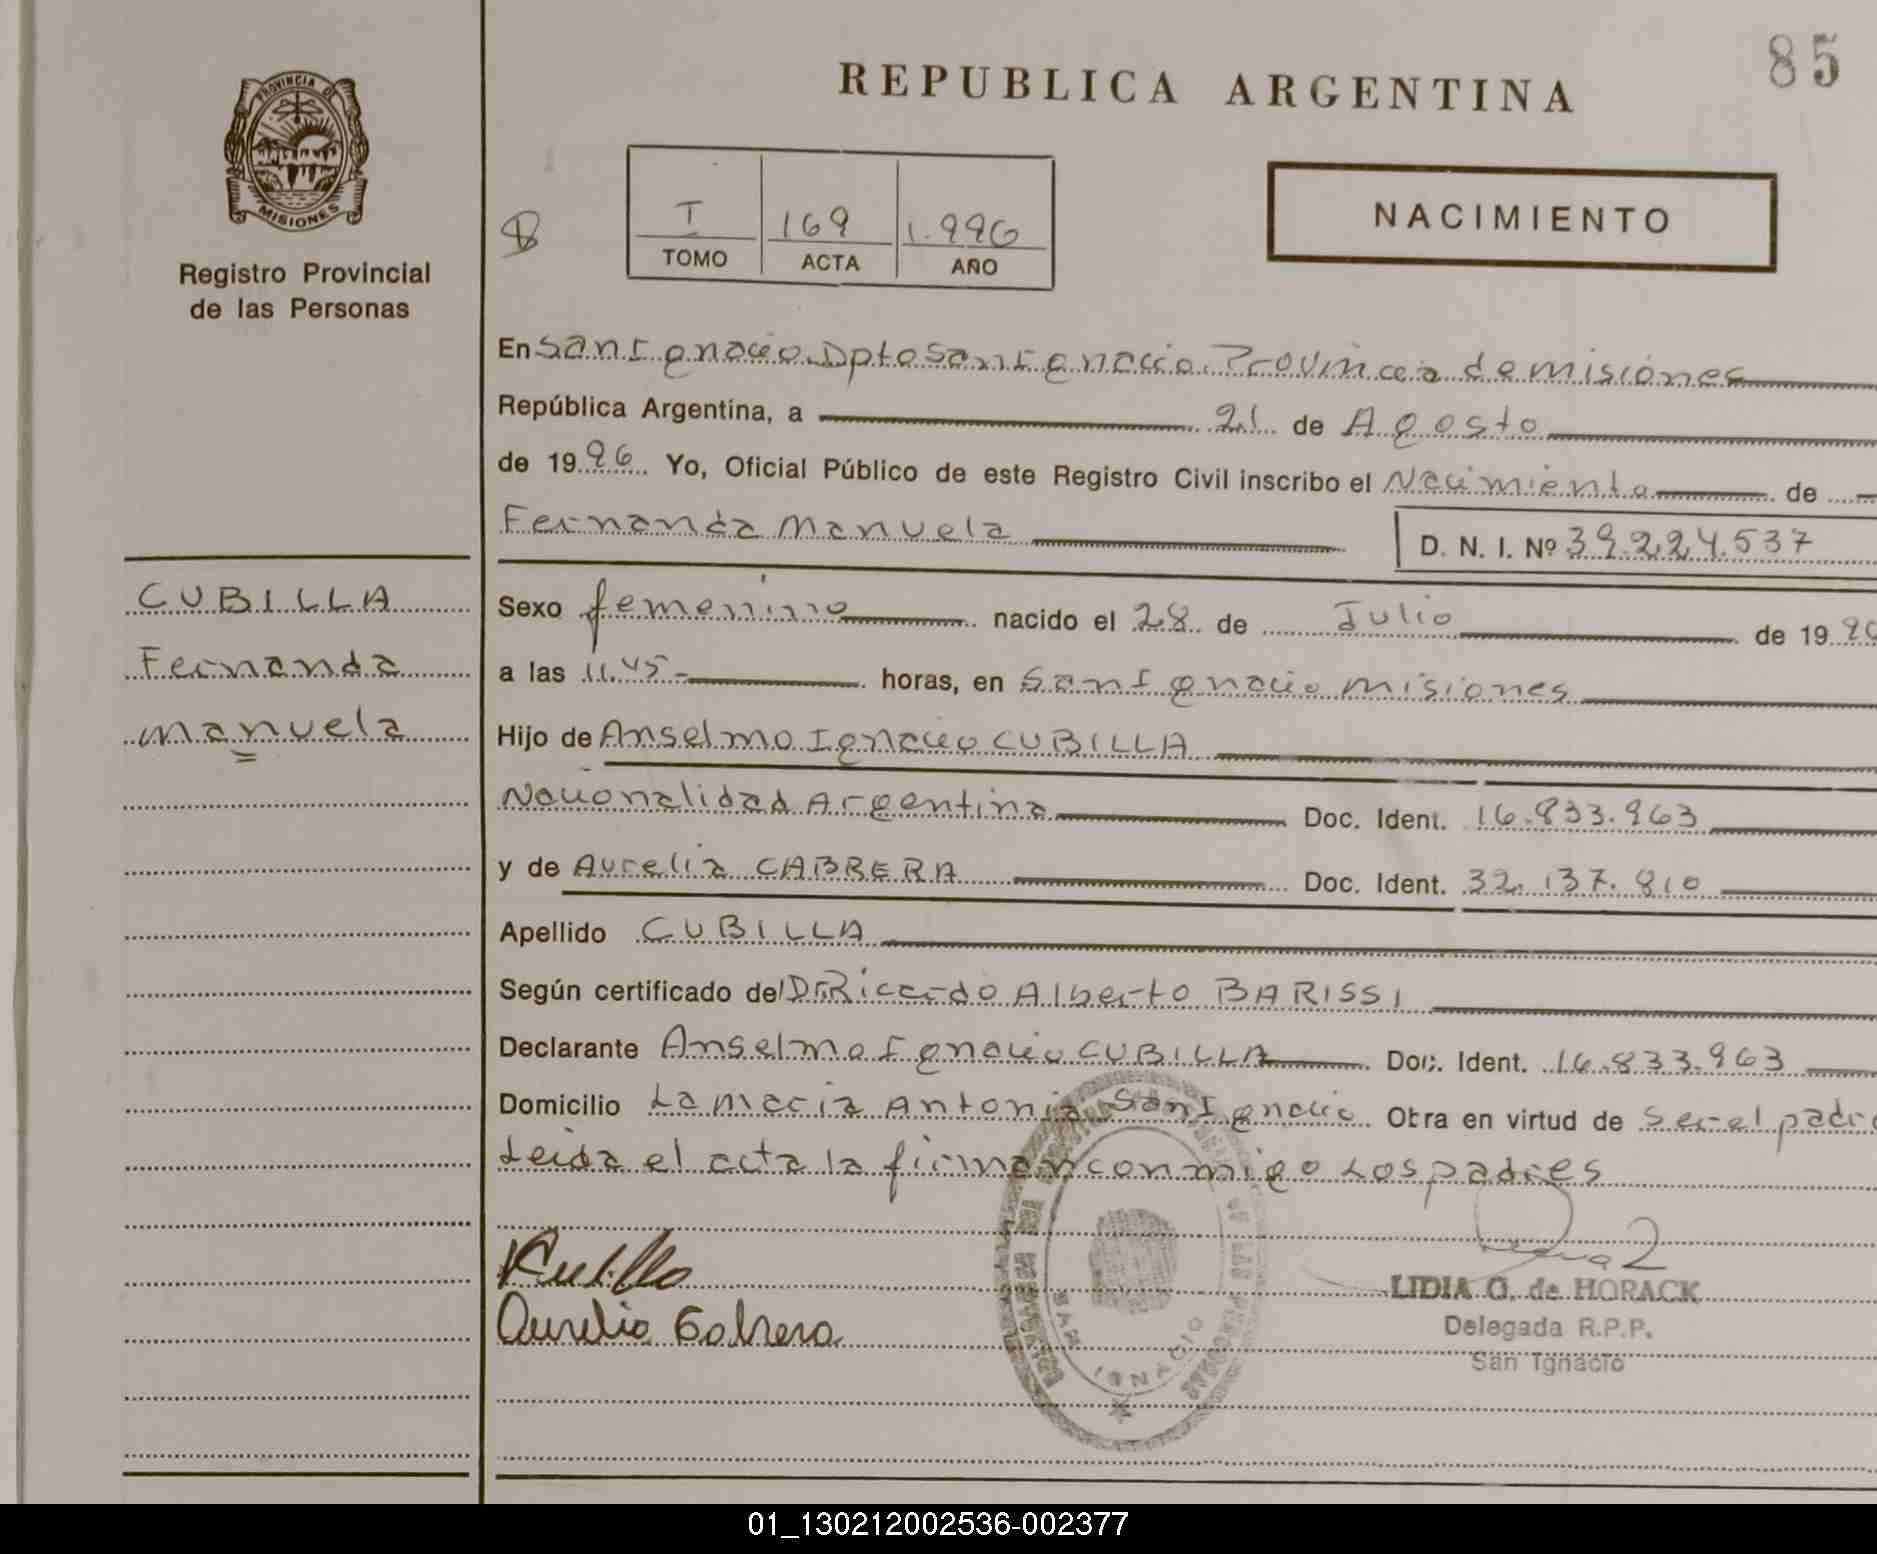 85
REPUBLICA ARGENTINA
PROVINCIA DE
MISIONES
Registro Provincial
de las Personas
I 169 1.996
TOMO ACTA AÑO
NACIMIENTO
En San Ignacio Dpto San Ignacio. Provincia de misiones
República Argentina, a 21 de Agosto
de 1996 Yo, Oficial Público de este Registro Civil inscribo el Nacimiento de
Fernanda Manuela D. N. I. Nº 39.224.537
CUBILLA
Fernanda
manuela
Sexo femenino nacido el 28 de Julio de 199
a las 11.45 horas, en San Ignacio misiones
Hijo de Anselmo Ignacio CUBILLA
Nacionalidad Argentina Doc. Ident. 16.833.963
y de Aurelia CABRERA Doc. Ident. 32.137.810
Apellido CUBILLA
Según certificado del Dr Ricardo Alberto BARISSI
Declarante Anselmo Ignacio CUBILLA Doc. Ident. 16.833.963
Domicilio La Maria Antonia San Ignacio Obra en virtud de Ser el padre
Leida el acta la firman conmigo Los padres
Aurelia Cabrera
SAN IGNACIO
LIDIA G. de HORACK
Delegada R.P.P.
San Ignacio
01_130212002536-002377